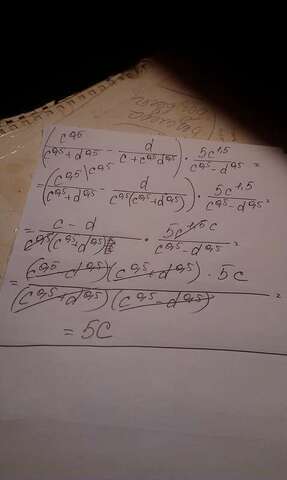 (c^0,5/(c^0,5+d^0,5) - d/(c+c^0,5d^0,5)) · 5c^1,5/(c^0,5-d^0,5) =
= (c^0,5\c^0,5/(c^0,5+d^0,5) - d/(c^0,5(c^0,5+d^0,5))) · 5c^1,5/(c^0,5-d^0,5) =
= (c-d)/(c^0,5(c^0,5+d^0,5)) · 5c^0,5c/(c^0,5-d^0,5) =
= (c^0,5-d^0,5)(c^0,5+d^0,5) · 5c/((c^0,5+d^0,5)(c^0,5-d^0,5)) =
= 5c